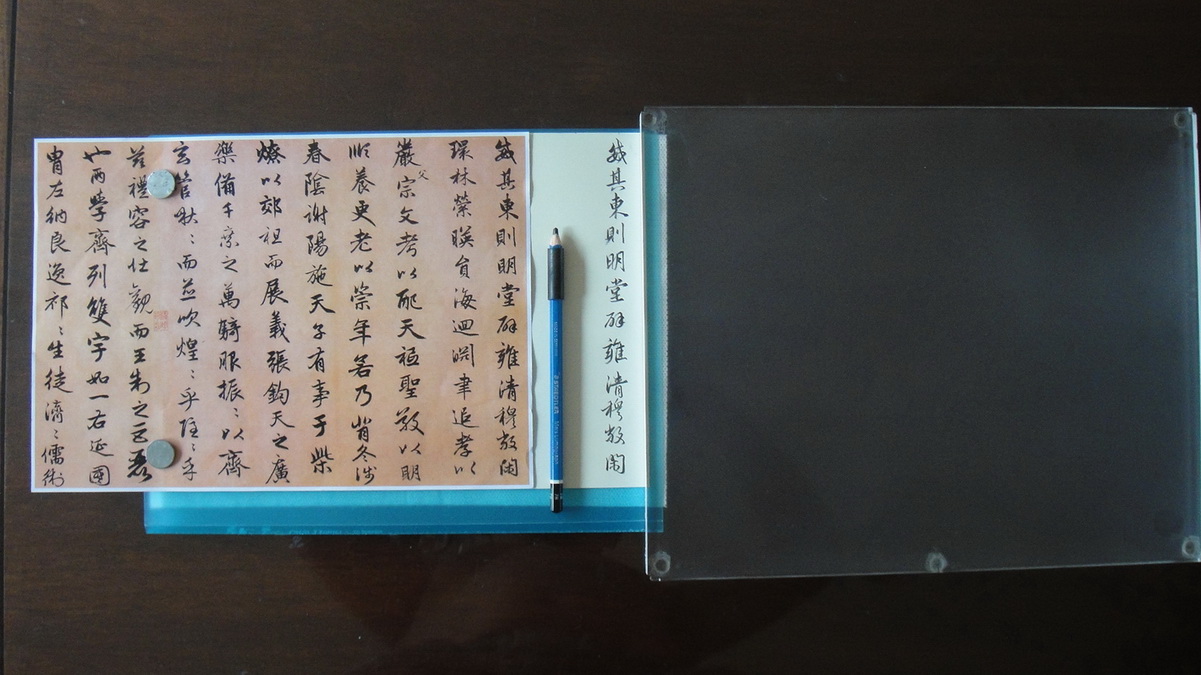 威其東則明堂辟雍清穆敞閑
STAEDTLER
威其東則明堂辟雍清穆敞閑
環林縈暎員海迴淵聿追孝以
嚴父宗文考以配天祗聖敬以明
順養更老以崇年若乃背冬涉
春陰謝陽施天子有事于柴
燎以郊祖而展義張鈞天之廣
樂備千乘之萬騎服振〻以齊
玄管啾〻而並吹煌〻乎隱〻乎
茲禮容之壯觀而王制之巨麗
也兩學齊列雙宇如一右延國
胄左納良逸祁〻生徒濟〻儒術